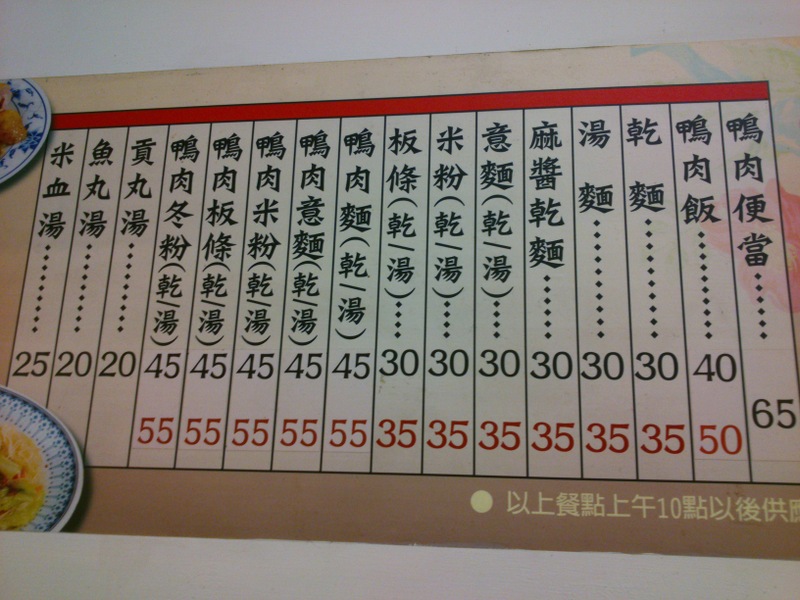 鴨肉便當······65
鴨肉飯······40 50
乾麵······30 35
湯麵······30 35
麻醬乾麵····30 35
意麵(乾/湯)···30 35
米粉(乾/湯)···30 35
板條(乾/湯)···30 35
鴨肉麵(乾/湯)45 55
鴨肉意麵(乾/湯)45 55
鴨肉米粉(乾/湯)45 55
鴨肉板條(乾/湯)45 55
鴨肉冬粉(乾/湯)45 55
貢丸湯······20
魚丸湯······20
米血湯······25
●以上餐點上午10點以後供應